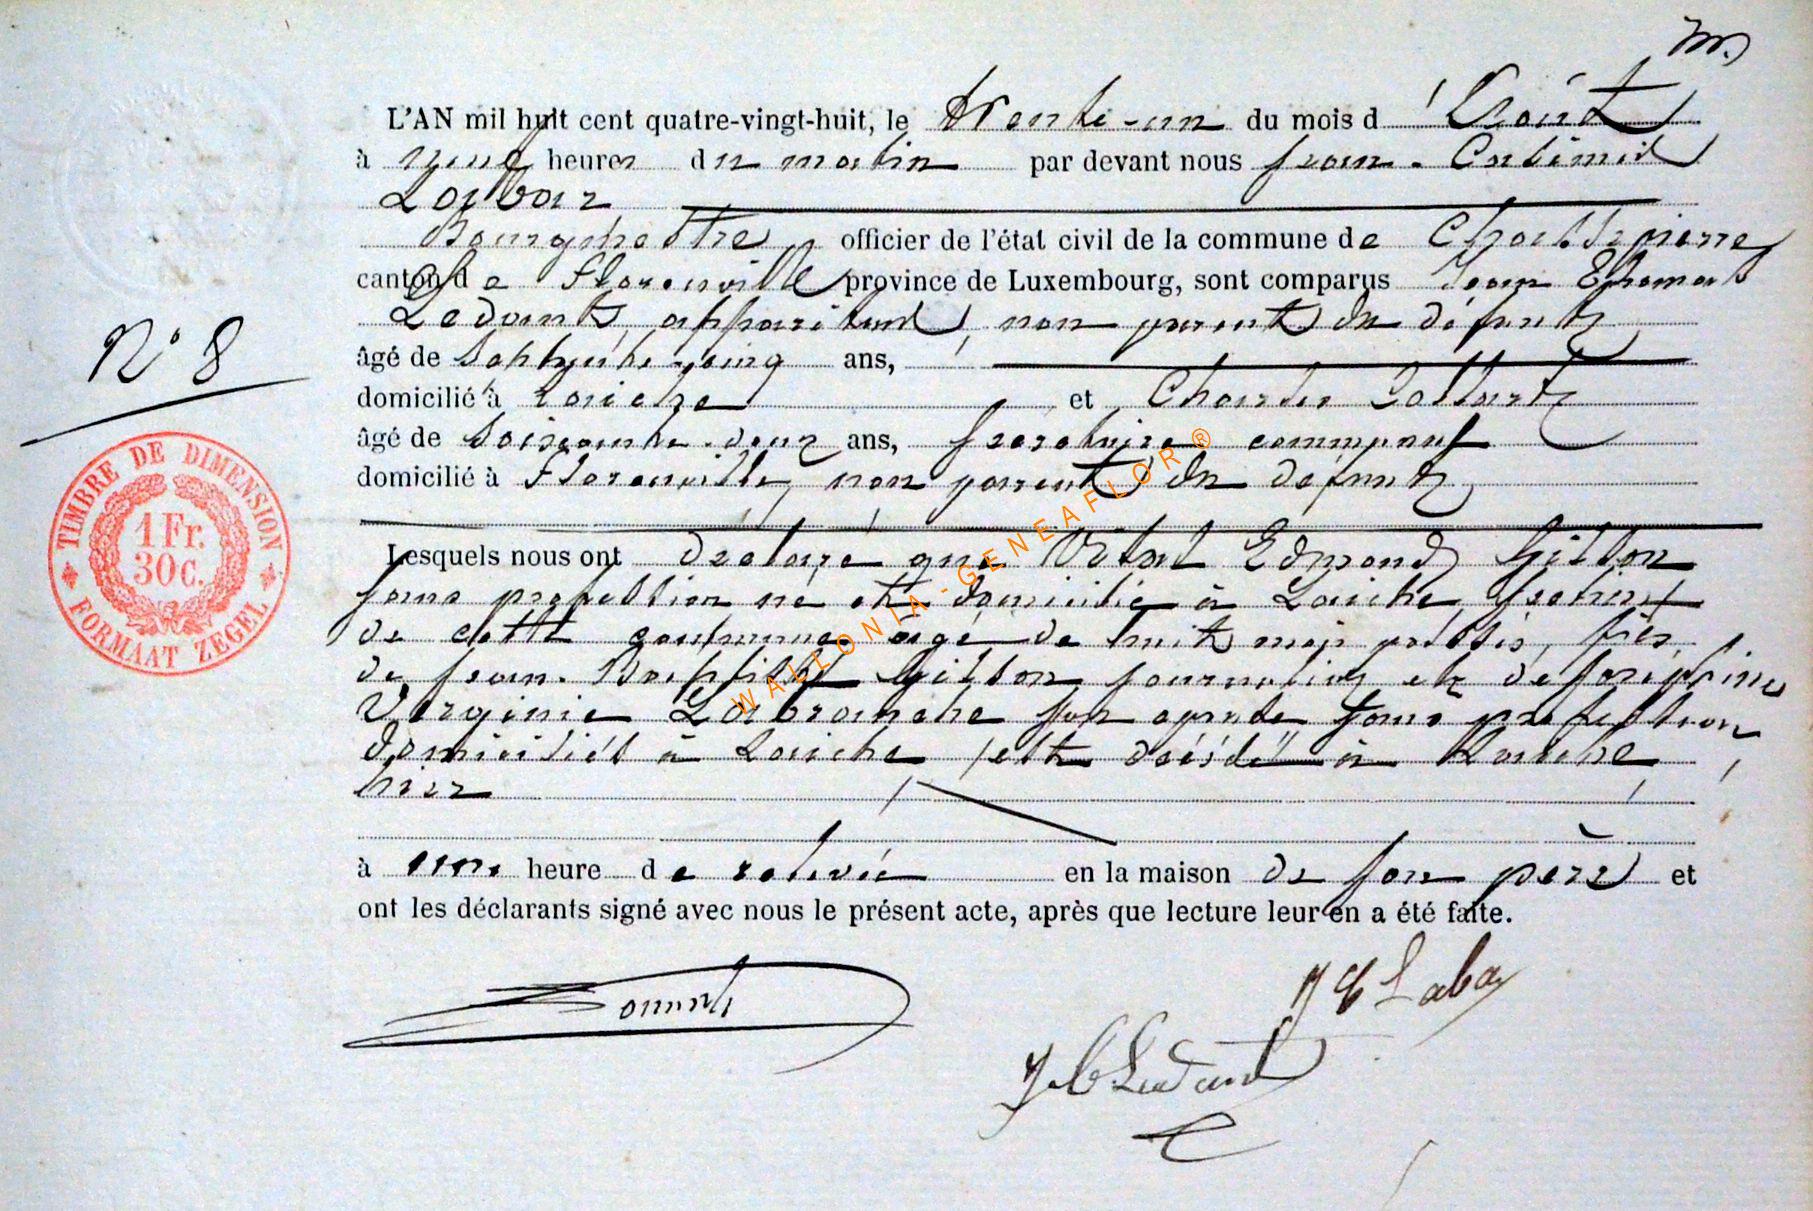 L'AN mil huit cent quatre-vingt-huit, le trente-un du mois d'Août
à neuf heures du matin par devant nous Jean-Casimir
Labar
Bourgmestre officier de l'état civil de la commune de Chassepierre
canton de Florenville province de Luxembourg, sont comparus Jean Thomas
Ledant, appariteur, non parent du défunt
âgé de septante-cinq ans,
domicilié à Laiche et Charles
âgé de soixante-deux ans, secrétaire communal
domicilié à Florenville, non parent du défunt,
Lesquels nous ont déclaré que Vital Edmond Gillon
sans profession né et domicilié à Laiche section
de cette commune âgé de huit mois passés, fils
de Jean-Baptiste Gillon journalier et de Joséphine
Virginie Labranche son épouse sans profession
domiciliés à Laiche, est décédé à Laiche,
hier
à une heure de relevée en la maison de son père et
ont les déclarants signé avec nous le présent acte, après que lecture leur en a été faite.
N° 8
TIMBRE DE DIMENSION
1 Fr.
30 C.
FORMAAT ZEGEL
WALLONIA-GENEAFLOR ®
J C Laba
Ledant